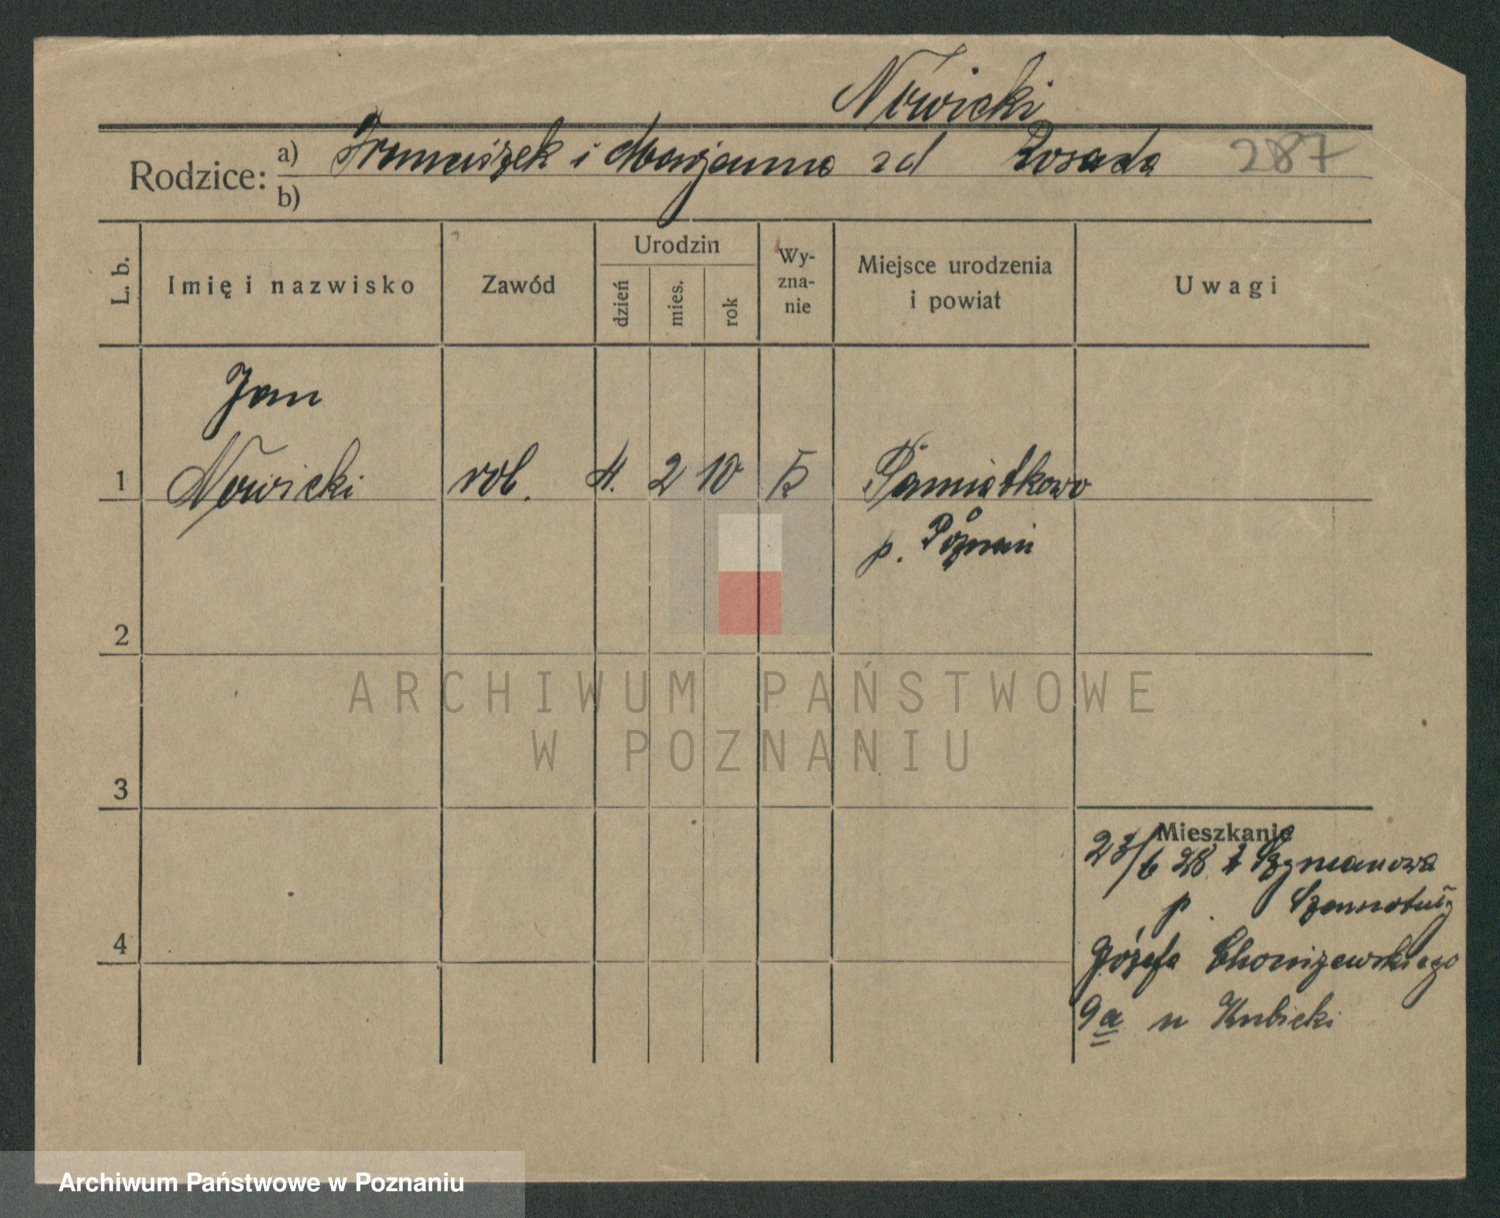 Nowicki
Rodzice: a) Franciszek i Marjanna zd Rosada 287
b)
L. b. Imię i nazwisko Zawód Urodzin dzień mies. rok Wy-zna-nie Miejsce urodzenia i powiat Uwagi
Jan
1 Nowicki rob. 4. 2 10 k Pamiątkowo
p. Poznań
2
3
Mieszkanie
23/6 28 z Szymanowa
p. Szamotuły
4 Józefa
9a u Kubicki
ARCHIWUM PAŃSTWOWE
W POZNANIU
Archiwum Państwowe w Poznaniu